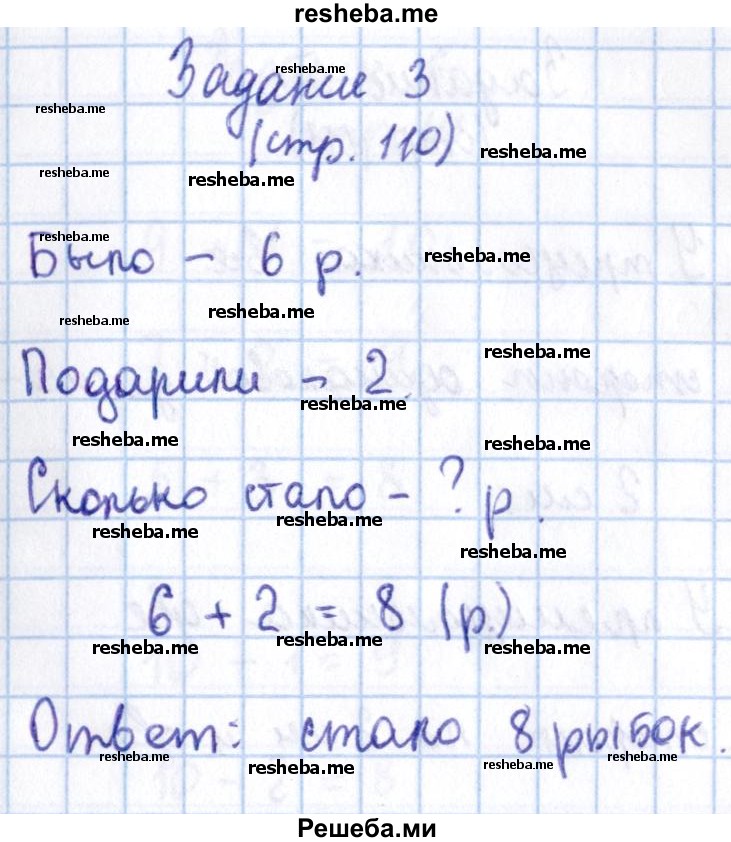 resheba.me
Задание 3
resheba.me
resheba.me
(стр. 110)
resheba.me
resheba.me
resheba.me
resheba.me
Было – 6 р.
resheba.me
resheba.me
resheba.me
resheba.me
Подарили – 2
resheba.me
resheba.me
resheba.me
Сколько стало – ? р.
resheba.me
resheba.me
resheba.me
6 + 2 = 8 (р.)
resheba.me
resheba.me
resheba.me
Ответ: стало 8 рыбок.
resheba.me
resheba.me
resheba.me
resheba.me
Решеба.ми